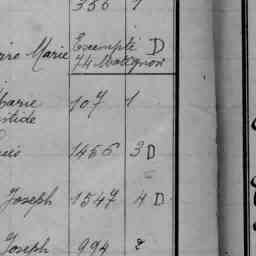 356 1
Marie Exempté D
74 Matignon
Marie 107 1
1456 3 D
Joseph 1547 4 D
Joseph 994 2